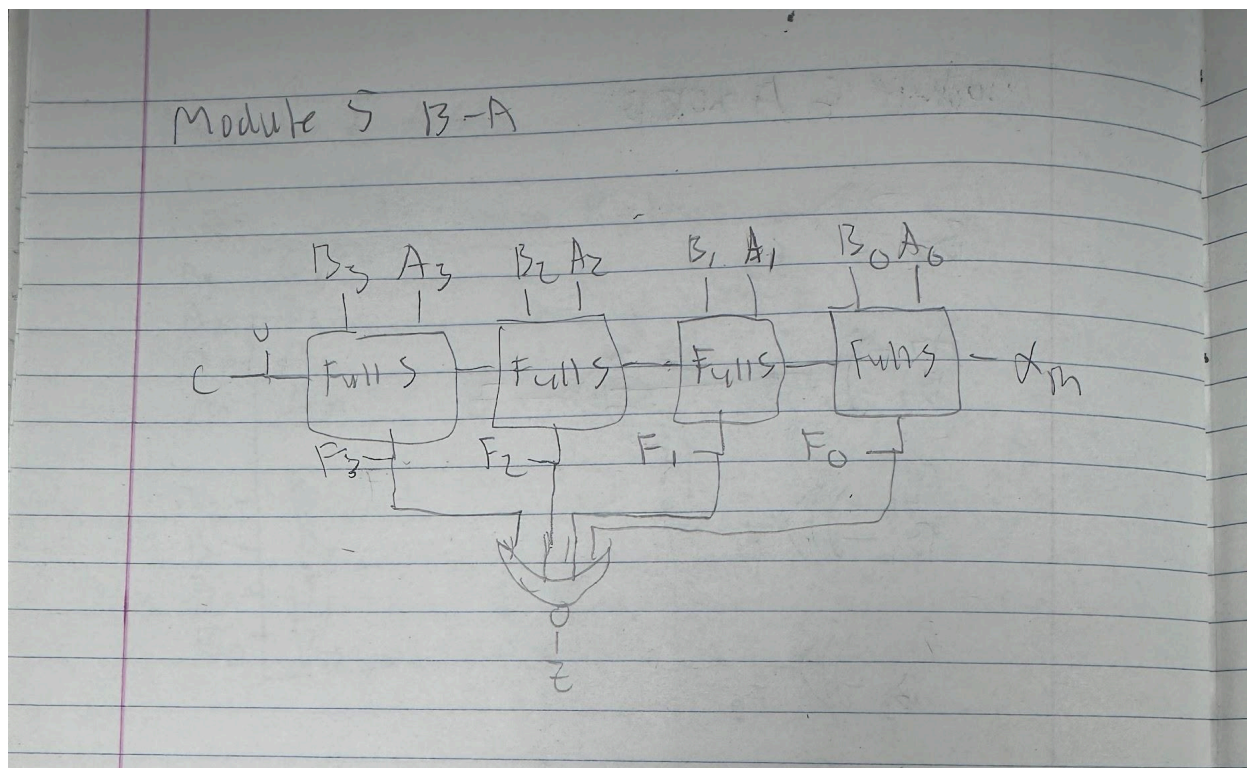 Module 5 B-A
B3 A3 B2 A2 B1 A1 B0 A0
U
C Full S Full S Full S Full S αin
F3 F2 F1 F0
Z